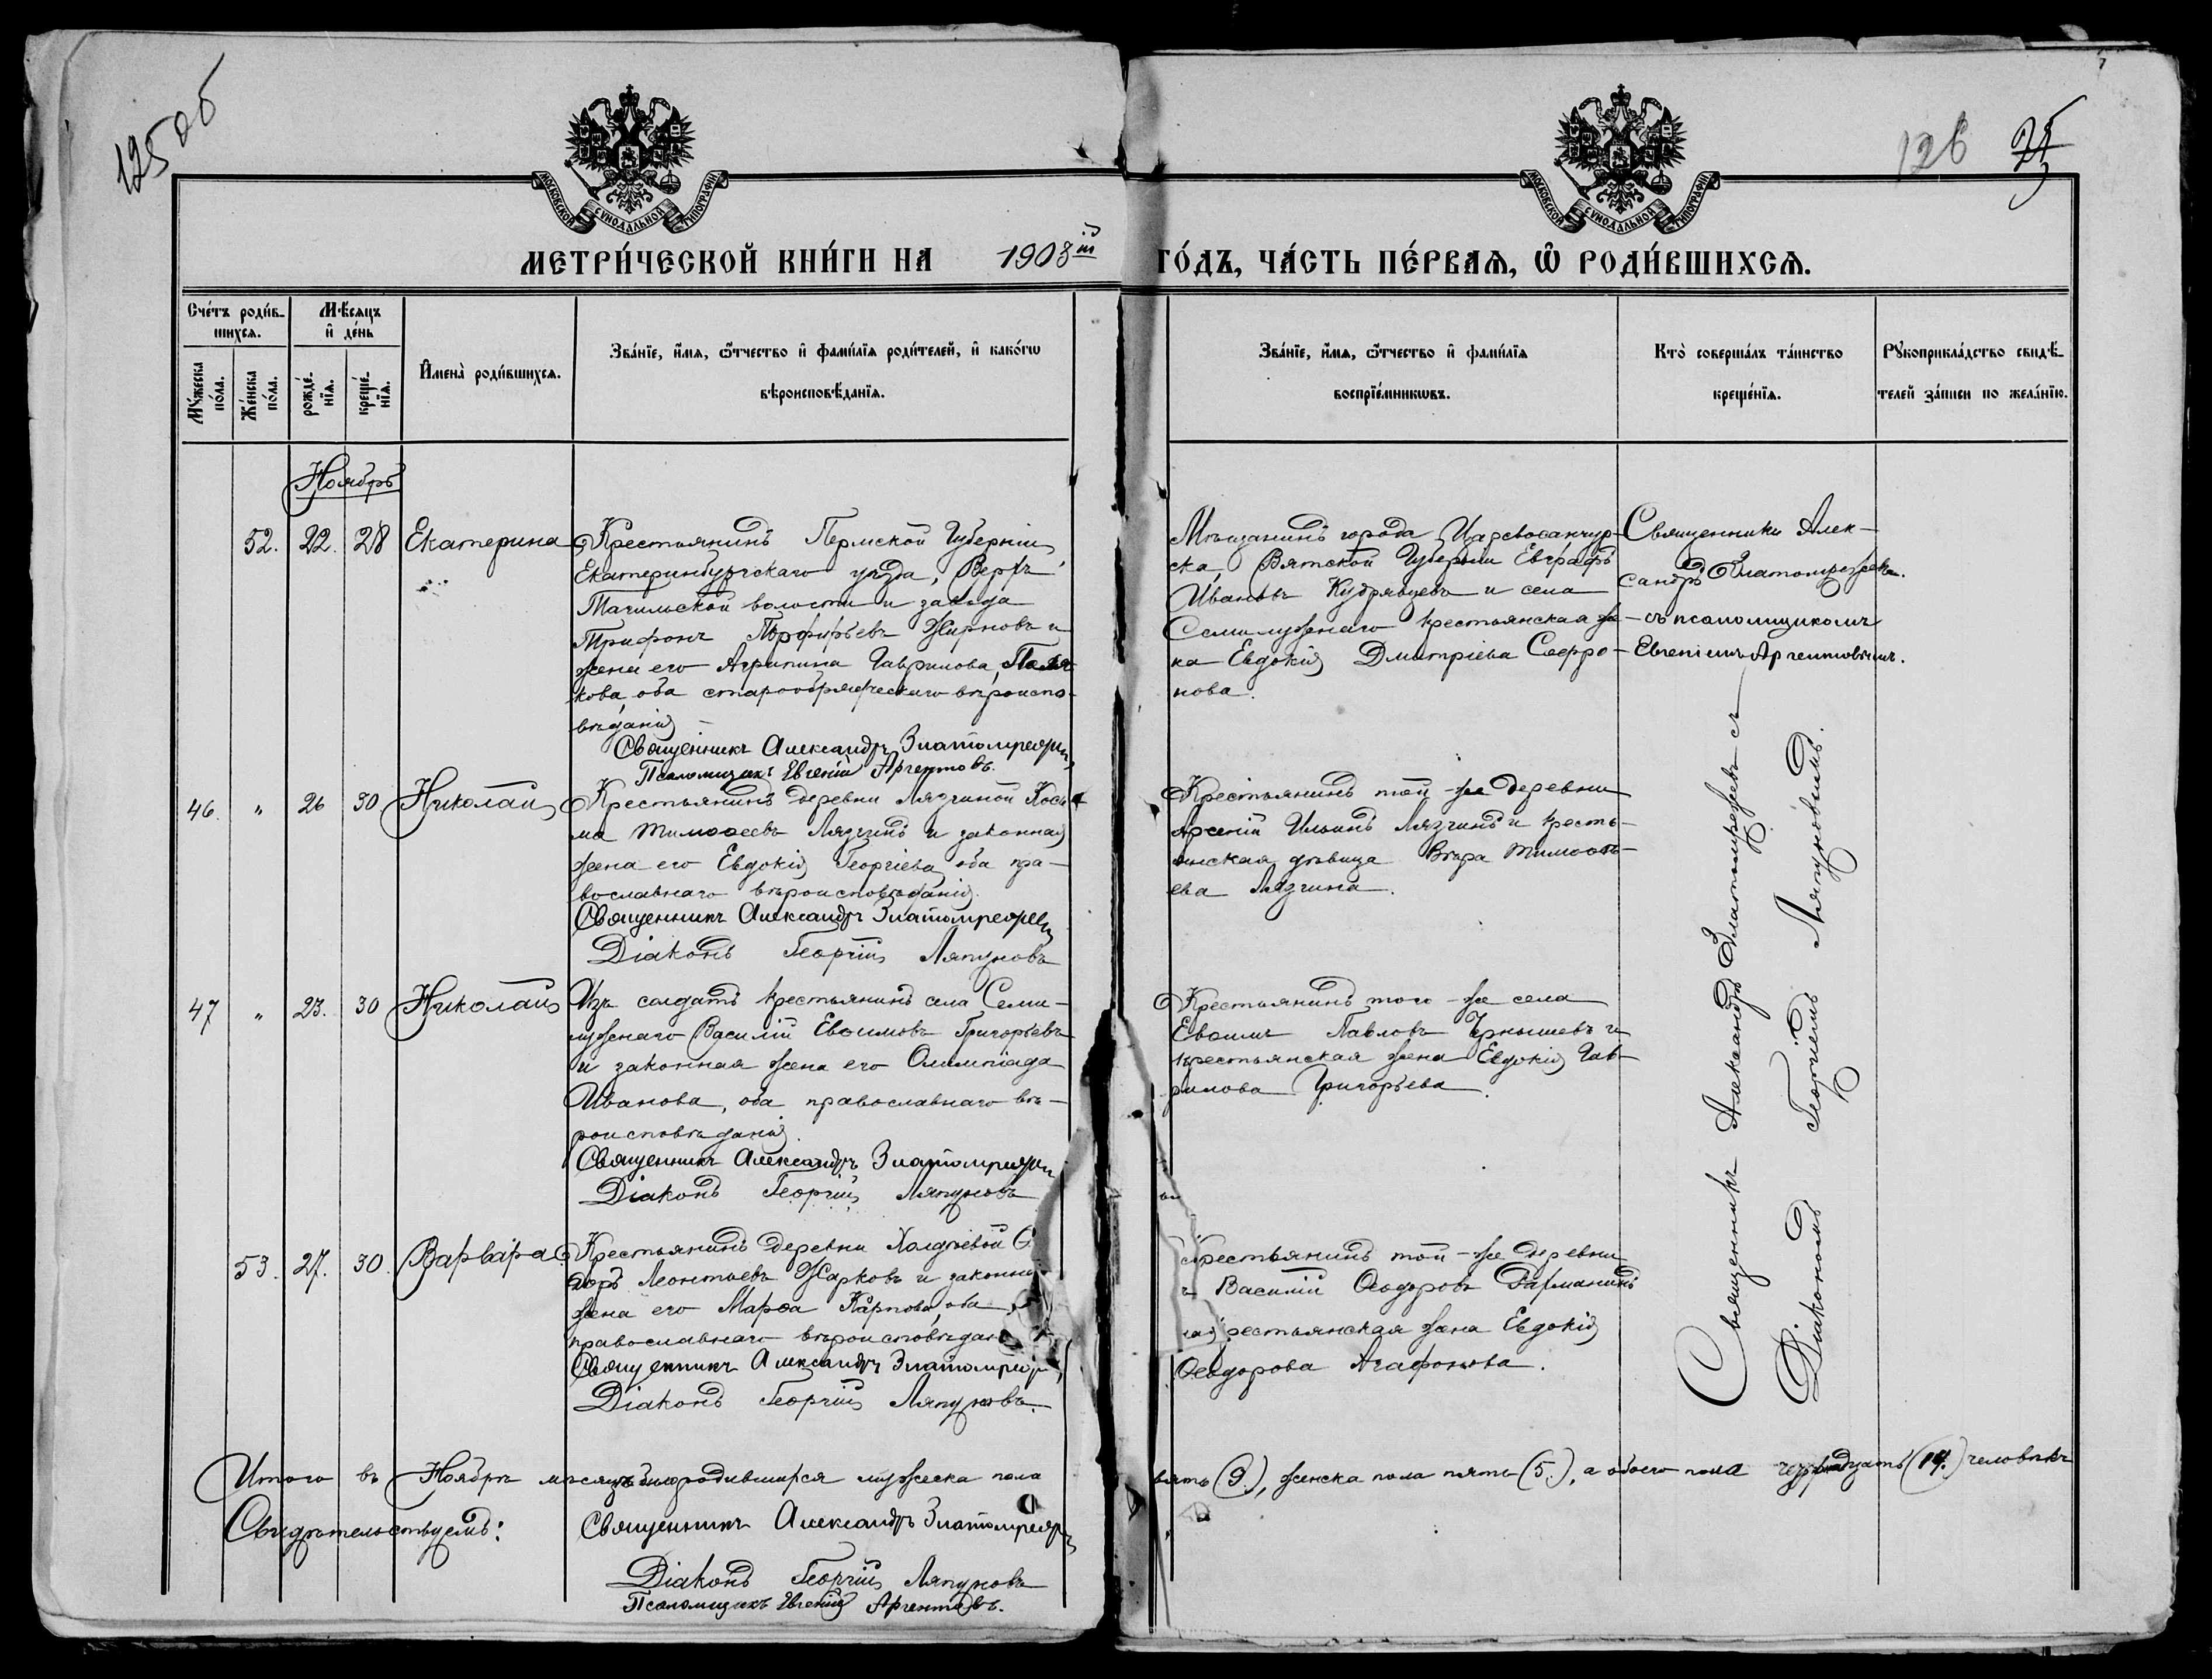 125 об
126
25
МОСКОВСКОЙ СУНОДАЛЬНОЙ ТИПОГРАФІИ
МОСКОВСКОЙ СУНОДАЛЬНОЙ ТИПОГРАФІИ
МЕТРИ́ЧЕСКОЙ КНИ́ГИ НА 1903 й ГО́ДЪ, ЧА́СТЬ ПЕ́РВАѦ, Ѽ РОДИ́ВШИХСѦ.
Сче́тъ роди́в-
шихсѧ.
Мꙋ́жеска
по́ла.
Же́нска
по́ла.
Мѣ́сѧцъ
и҆ де́нь
рожде́-
нїѧ.
креще́-
нїѧ.
И҆мена̀ роди́вшихсѧ.
Зва́нїе, и҆́мѧ, ѻ҆́тчество и҆ фами́лїѧ роди́телей, и҆ како́гѡ
вѣроисповѣ́данїѧ.
Зва́нїе, и҆́мѧ, ѻ҆́тчество и҆ фами́лїѧ
воспрїе́мникѡвъ.
Кто̀ соверша́лъ та́инство
креще́нїѧ.
Рꙋкоприкла́дство свидѣ́-
телей за́писи по жела́нїю.
Ноябрь
52. 22. 28 Екатерина
Крестьянинъ Пермской Губерніи
Екатеринбургскаго уѣзда, Верхъ
Тагильской волости и завода
Трифонъ Порфирьевъ Жирновъ и
жена его Агрипина Гаврилова,
кова, оба старообрядческаго вѣроиспо-
вѣданія
Священникъ Александръ Златомрежевъ
Псаломщикъ Евгеній Аргентовъ.
Мѣщанинъ города Царевосанчур-
ска, Вятской Губерніи Евграфъ
Ивановъ Кудрявцевъ и села
Семилужнаго крестьянская же-
на Евдокія Дмитріева Сафро-
нова.
Священникъ Алек-
сандръ Златомрежевъ
съ псаломщикомъ
Евгеніемъ Аргентовымъ.
46. " 26 30 Николай
Крестьянинъ деревни Лязгиной Кось-
ма Тимоѳеевъ Лязгинъ и законная
жена его Евдокія Георгіева, оба пра-
вославнаго вѣроисповѣданія.
Священникъ Александръ Златомрежевъ
Діаконъ Георгій Ляпуновъ
Крестьянинъ той-же деревни
Арсеній Ильинъ Лязгинъ и кресть-
янская дѣвица Вѣра Тимоѳе-
ева Лязгина.
47 " 23. 30 Николай
Изъ солдатъ крестьянинъ села Семи-
лужнаго Василій Евѳимовъ Григорьевъ
и законная жена его Олимпіада
Иванова, оба православнаго вѣ-
роисповѣданія.
Священникъ Александръ Златомрежевъ
Діаконъ Георгій Ляпуновъ
Крестьянинъ того-же села
Евѳимъ Павловъ Чернышевъ и
крестьянская жена Евдокія Гав-
рилова Григорьева.
53. 27. 30. Варвара
Крестьянинъ деревни Халдѣевой
доръ Леонтьевъ Жарковъ и законная
жена его Марѳа Карпова, оба
православнаго вѣроисповѣдан
Священникъ Александръ Златомрежевъ
Діаконъ Георгій Ляпуновъ.
Крестьянинъ той-же деревни
Василій Ѳеодоровъ
крестьянская жена Евдокія
Ѳеодорова Агафонова.
Священникъ Александръ Златомрежевъ съ
Діакономъ Георгіемъ Ляпуновымъ.
Итого въ Ноябрѣ мѣсяцѣ было родившихся мужеска пола
вять (9.), женска пола пять (5.), а обоего пола четырнадцать (14.) человѣкъ
Свидѣтельствуемъ:
Священникъ Александръ Златомрежевъ
Діаконъ Георгій Ляпуновъ
Псаломщикъ Евгеній Аргентовъ.